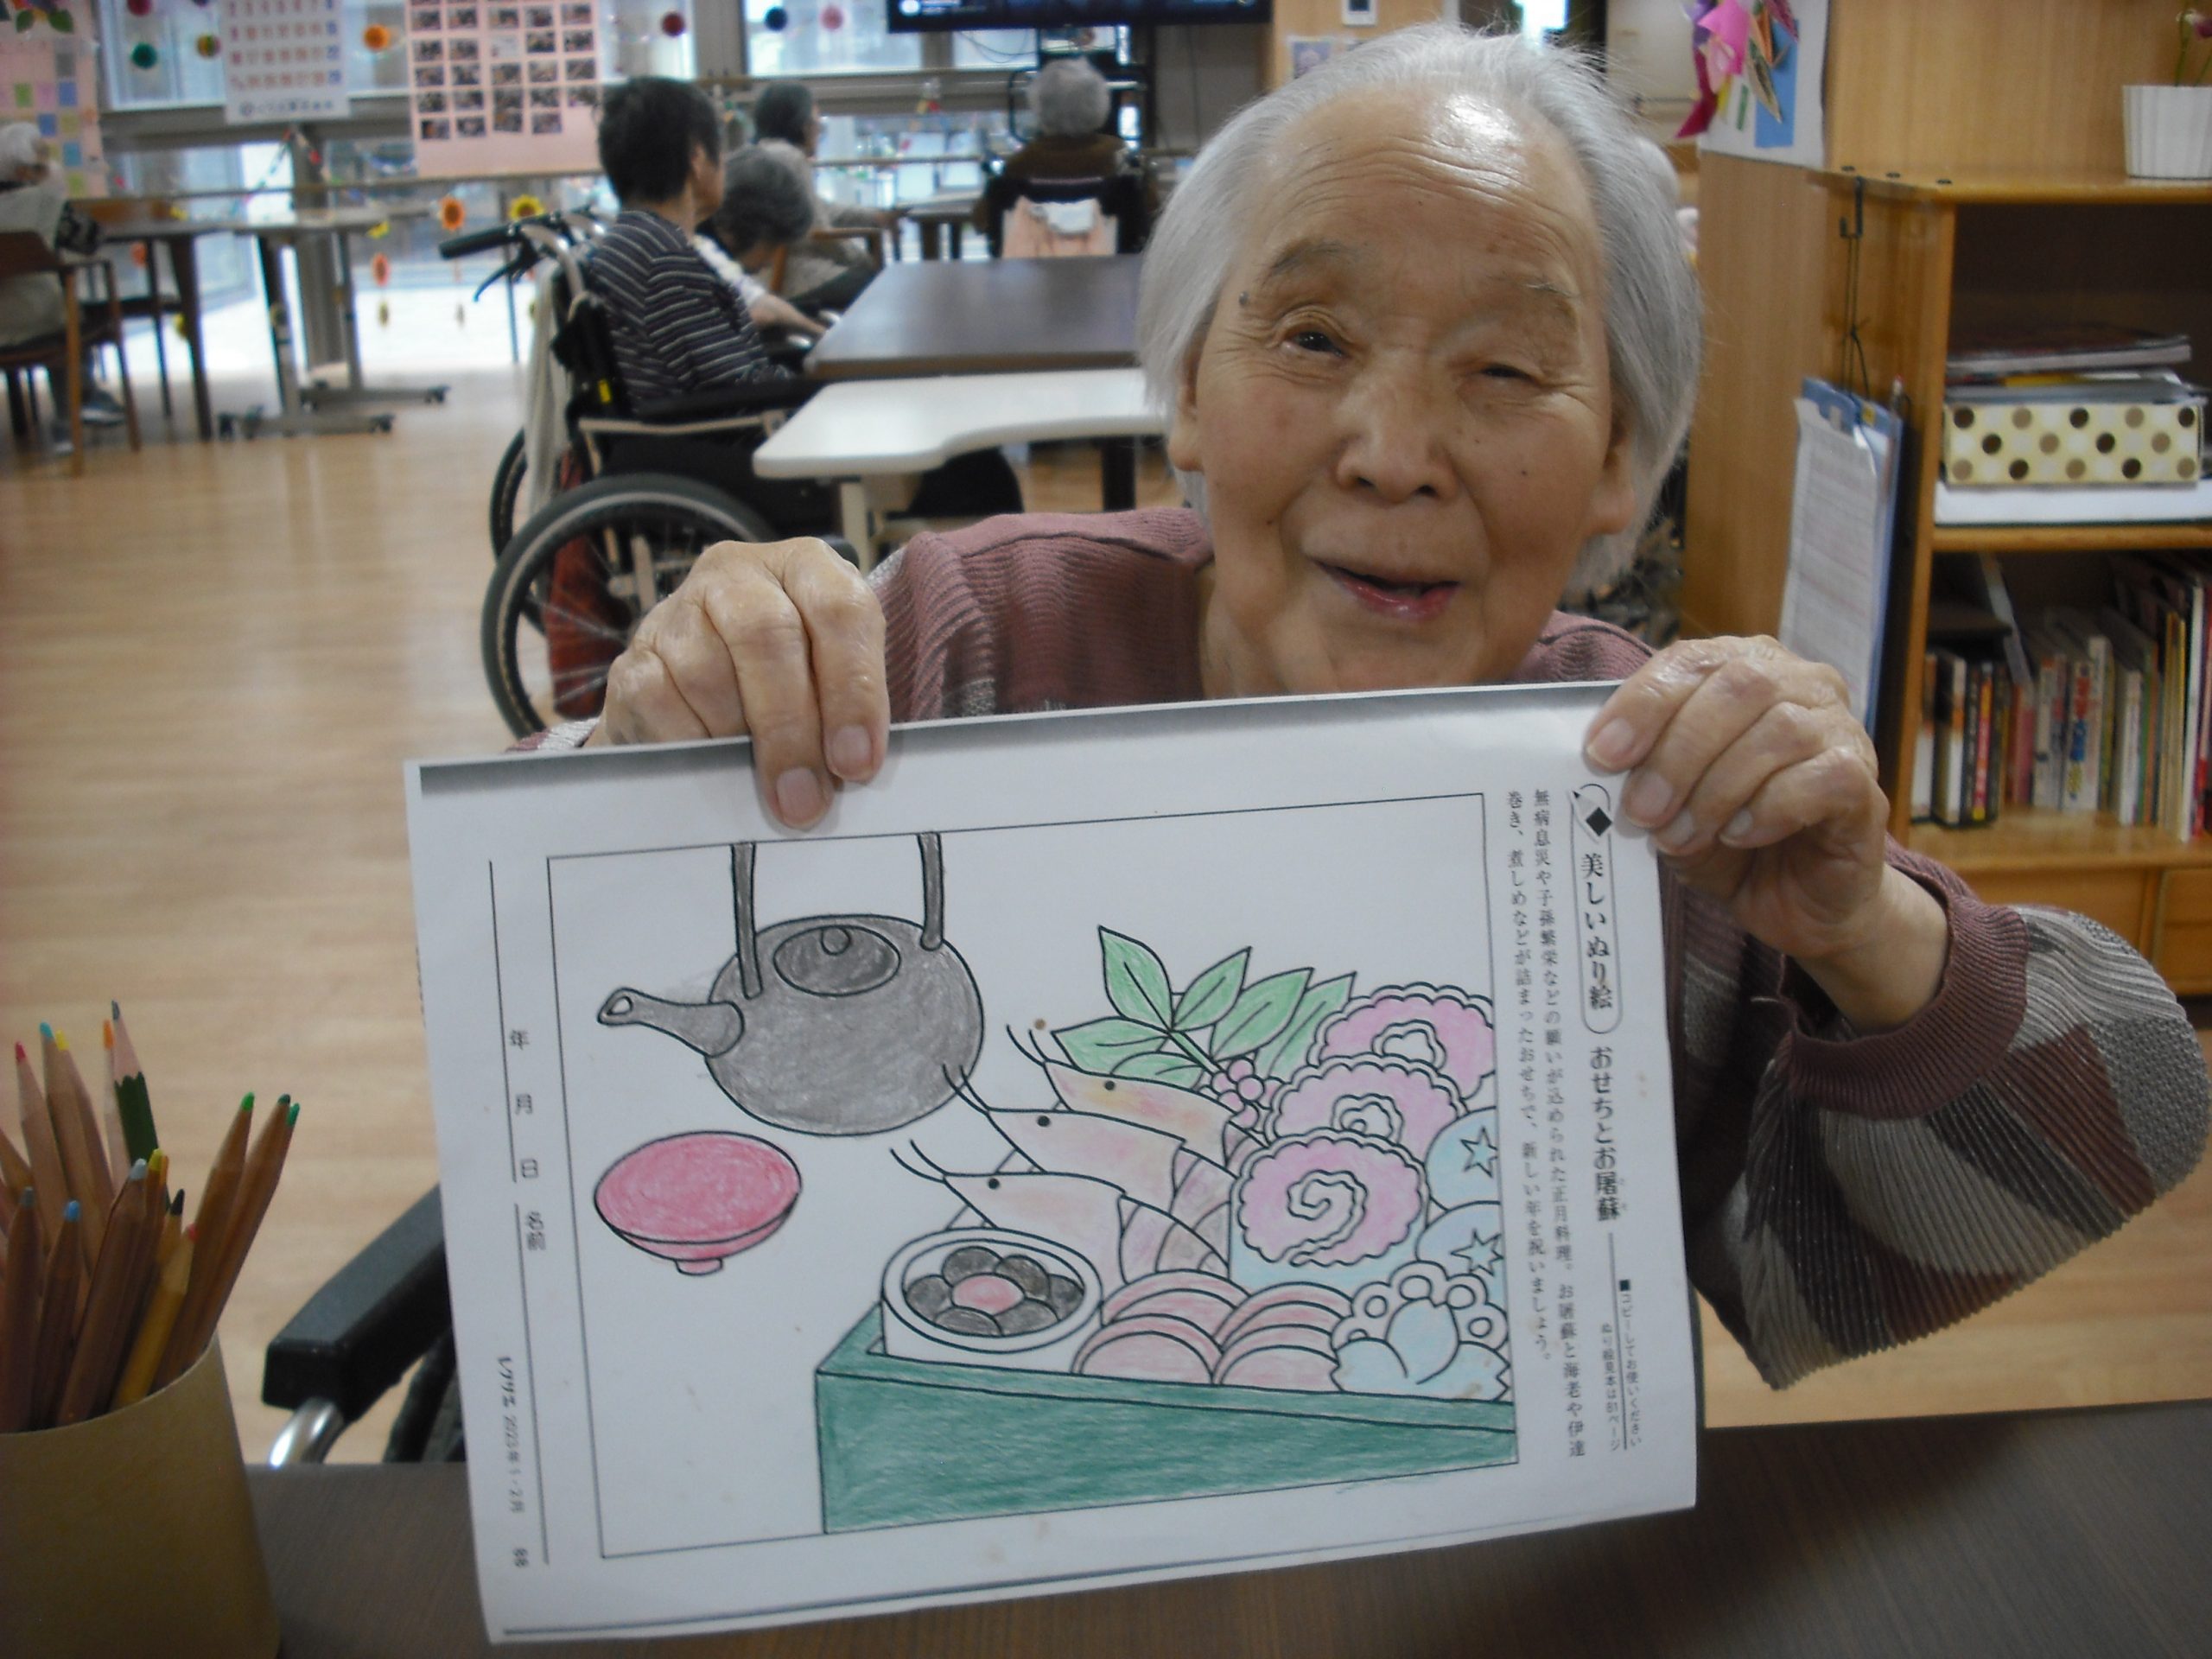 美しいぬり絵 おせちとお屠蘇
■コピーしてお使いください
ぬり絵見本は81ページ
無病息災や子孫繁栄などの願いが込められた正月料理。お屠蘇と海老や伊達
巻き、煮しめなどが詰まったおせちで、新しい年を祝いましょう。
年 月 日 名前
レクリエ 2023年1・2月 88